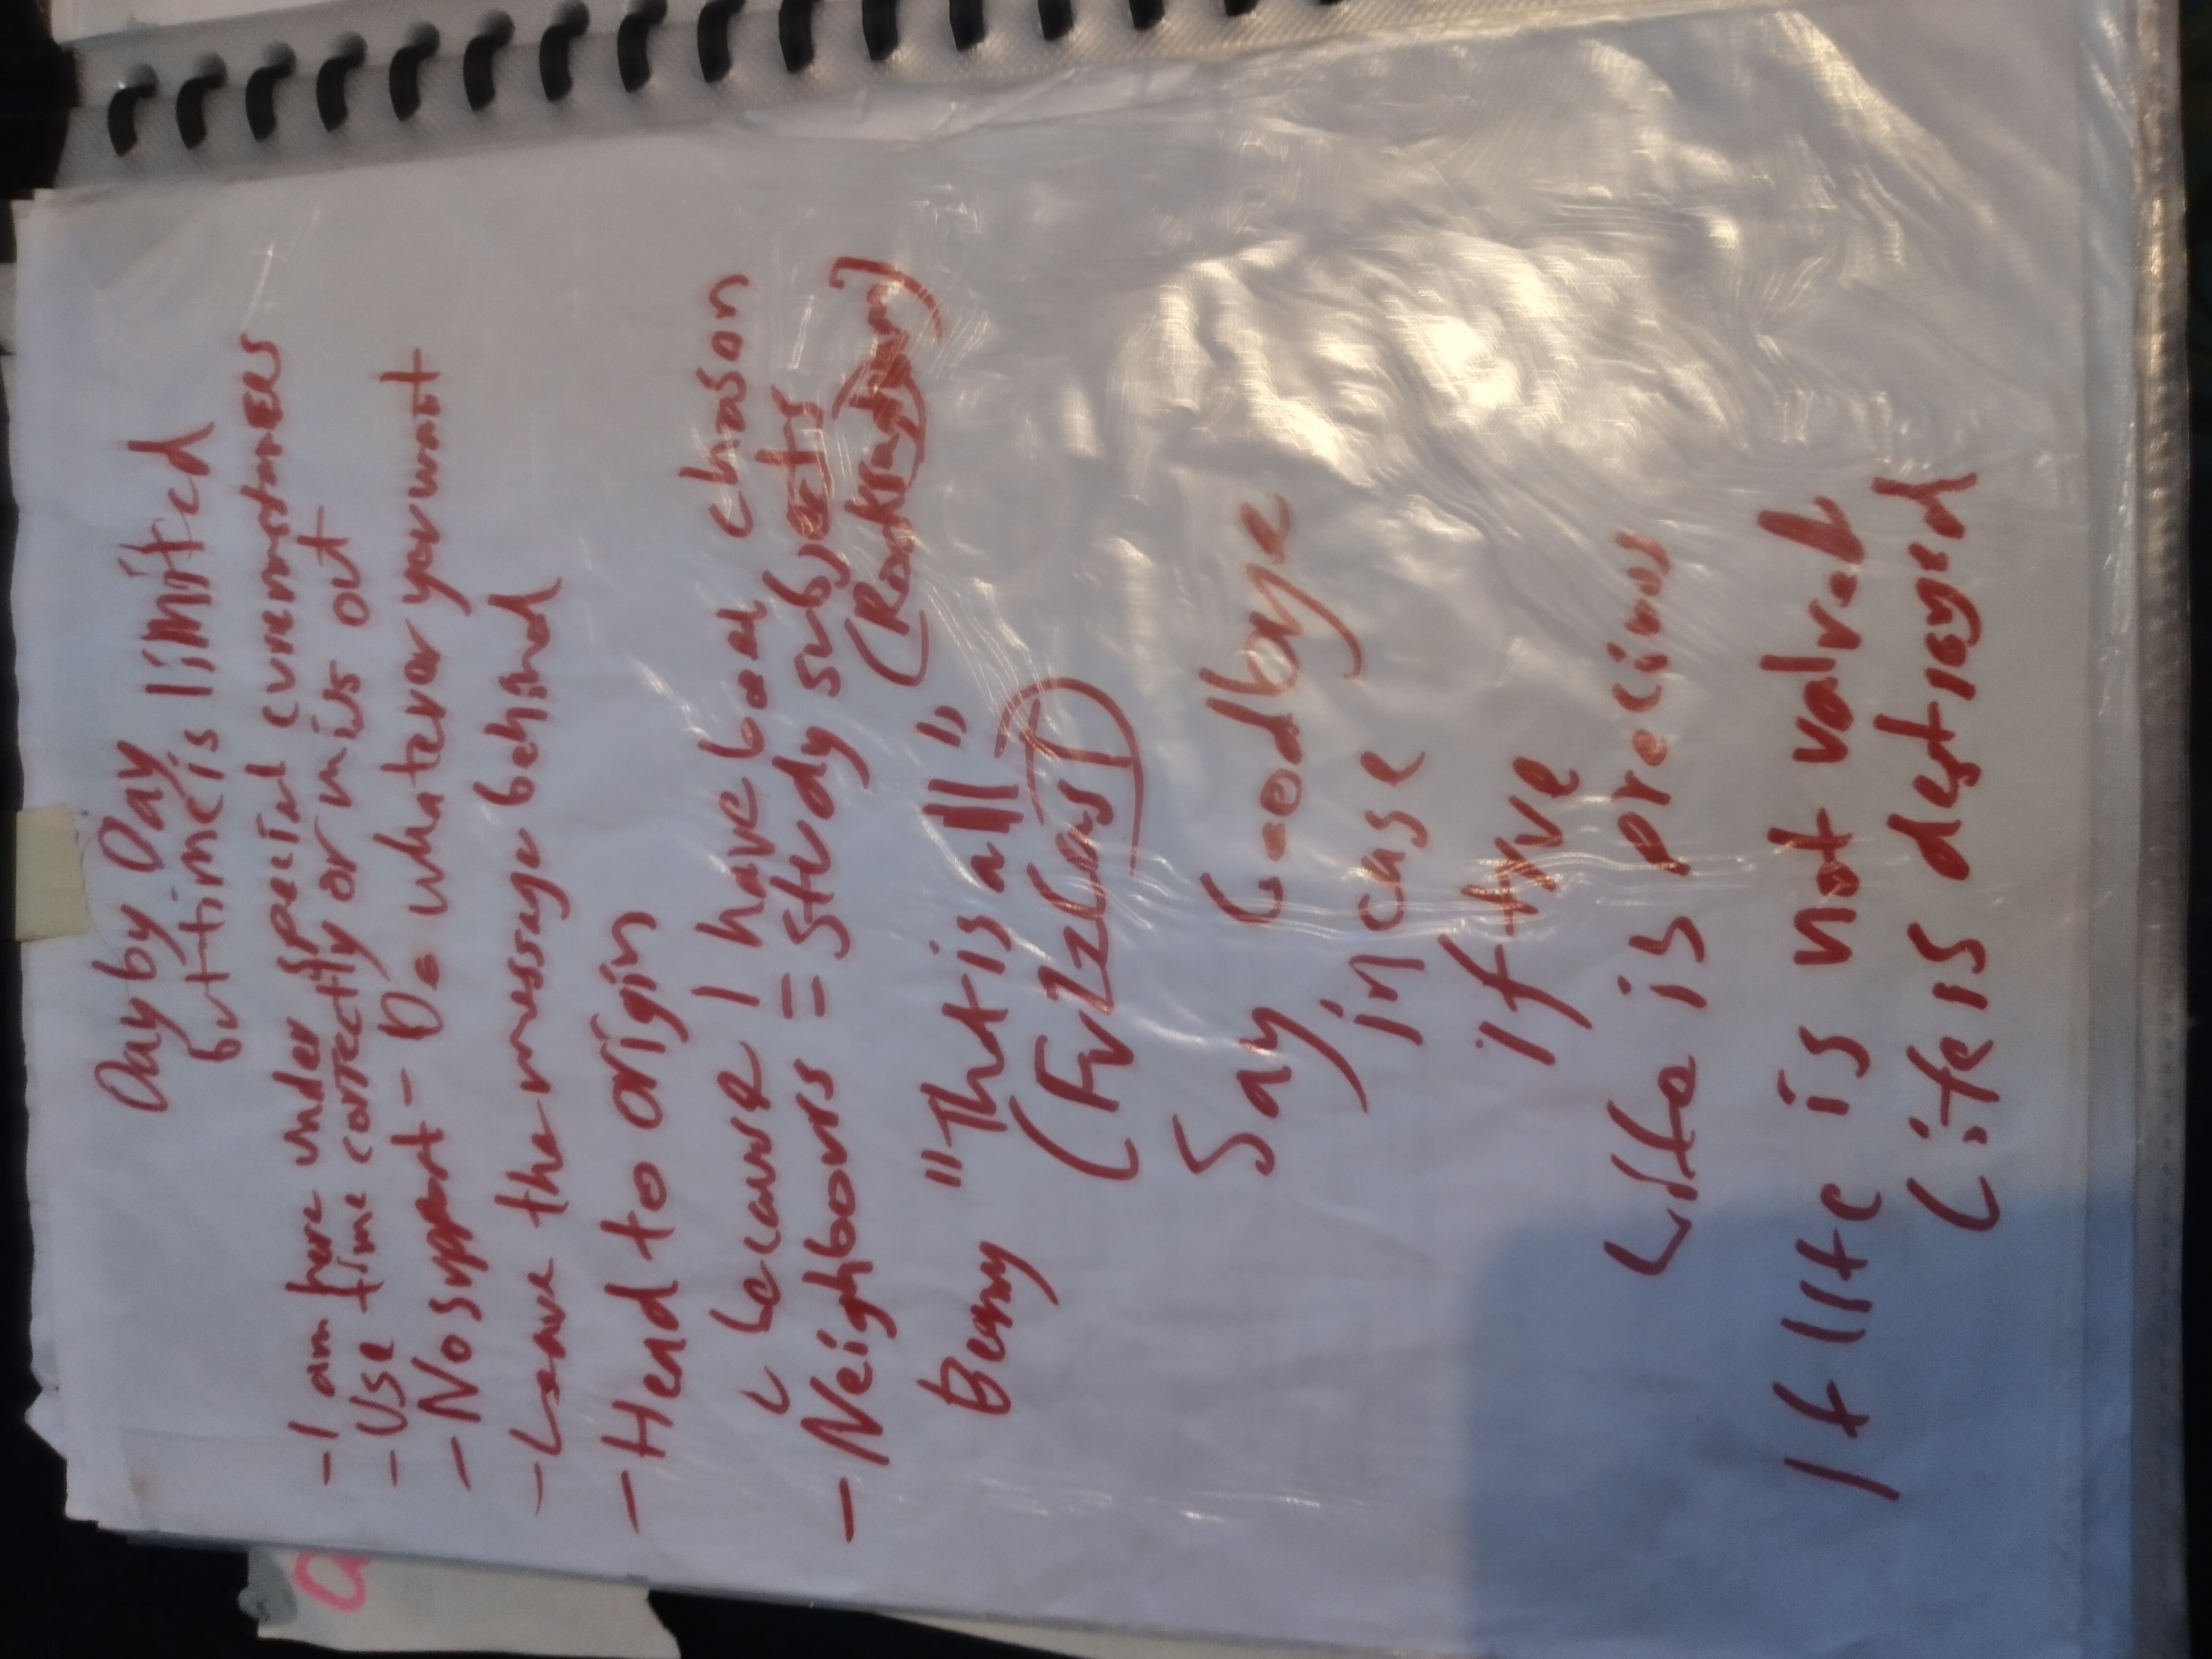 Day by Day
but time is limited
- I am here under special curcumstances
- Use time correctly or miss out
- No support - Do whatever you want
- Leave the message behind
- Head to origin
because I have been chosen
- Neighbours = study subjects
Beamy "That is all"
Say Goodbye
in case
if tyve
Life is precious
If life is not valued
Life is destroyed